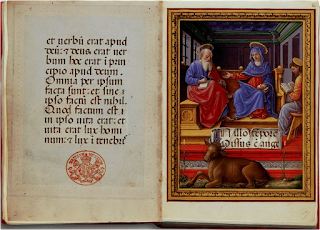 et verbū erat apud
deū: & deus erat ver
bum hoc erat ī prin
cipio apud deum.
Omnia per ipsum
facta sunt: et sine ī
ipso factū est nihil.
Quod factum est: ī
in ipso vita erat: et
vita erat lux homi
num: & lux ī tenebris
In illo tempore